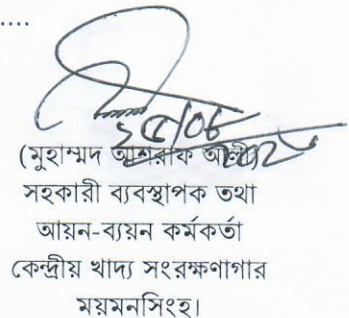 .....
(মুহাম্মদ আশরাফ আলী)
সহকারী ব্যবস্থাপক তথা
আয়ন-ব্যয়ন কর্মকর্তা
কেন্দ্রীয় খাদ্য সংরক্ষণাগার
ময়মনসিংহ।